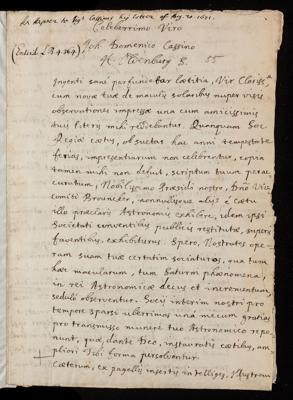 An Answer to Sigr Cassini his letter of Aug. 20. 1671.
Celeberrimo Viro
(Enter'd L.B. 4. 369) Joh. Domenico Cassino
H. Oldenburg S. 55
Ingenti sanè perfundebar lætitia, Vir Clariss.e
cum novæ tuæ de maculis solaribus nuper visis
observationes impressæ unà cum amicissimis
tuis literis mihi redderentur. Quanquam Soc.
Regiæ cœtus, ob suetas hac anni tempestate
ferias, impresentiarum non celebrentur, copia
tamen mihi non defuit, scriptum tuum peraccuratum,
Nobilissimo Præsidi nostro, Dno Vicecomiti
Brouncker, nonnullisque aliis è cœtu
illo præclaris Astronomis exhibere; idem ipsi
Societati conventibus publicis restitutæ, superis
faventibus, exhibiturus. Spero, Nostrates operam
suam tuæ certatim sociaturos, quò tum
hæ macularum, tum Saturni phænomena,
in rei Astronomicæ decus et incrementum,
sedulò observentur. Socii interim nostri pro
tempore sparsi uberrimas unà mecum gratias
pro transmisso munere tuo Astronomico reponunt,
quas, dante Deo, instauratis cœtibus, ampliori
Tibi forma persolvent.
Cæterùm, ex pagellis insertis intelliges, Illustrem